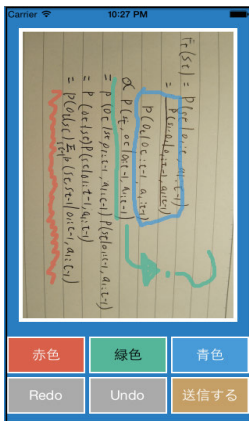 Carrier 10:27 PM
(st) = P(st|o1:t, a1:t-1)
P(ot|o1:t-1, a1:t-1)
∝ P(st, ot|o1:t-1, a1:t-1)
= P(ot|st, o1:t-1, a1:t-1) P(st|o1:t-1, a1:t-1)
= P(ot|st) P(st|o1:t-1, a1:t-1)
= P(ot|st) Σ P(st, st-1|o1:t-1, a1:t-1)
?
赤色 緑色 青色
Redo Undo 送信する